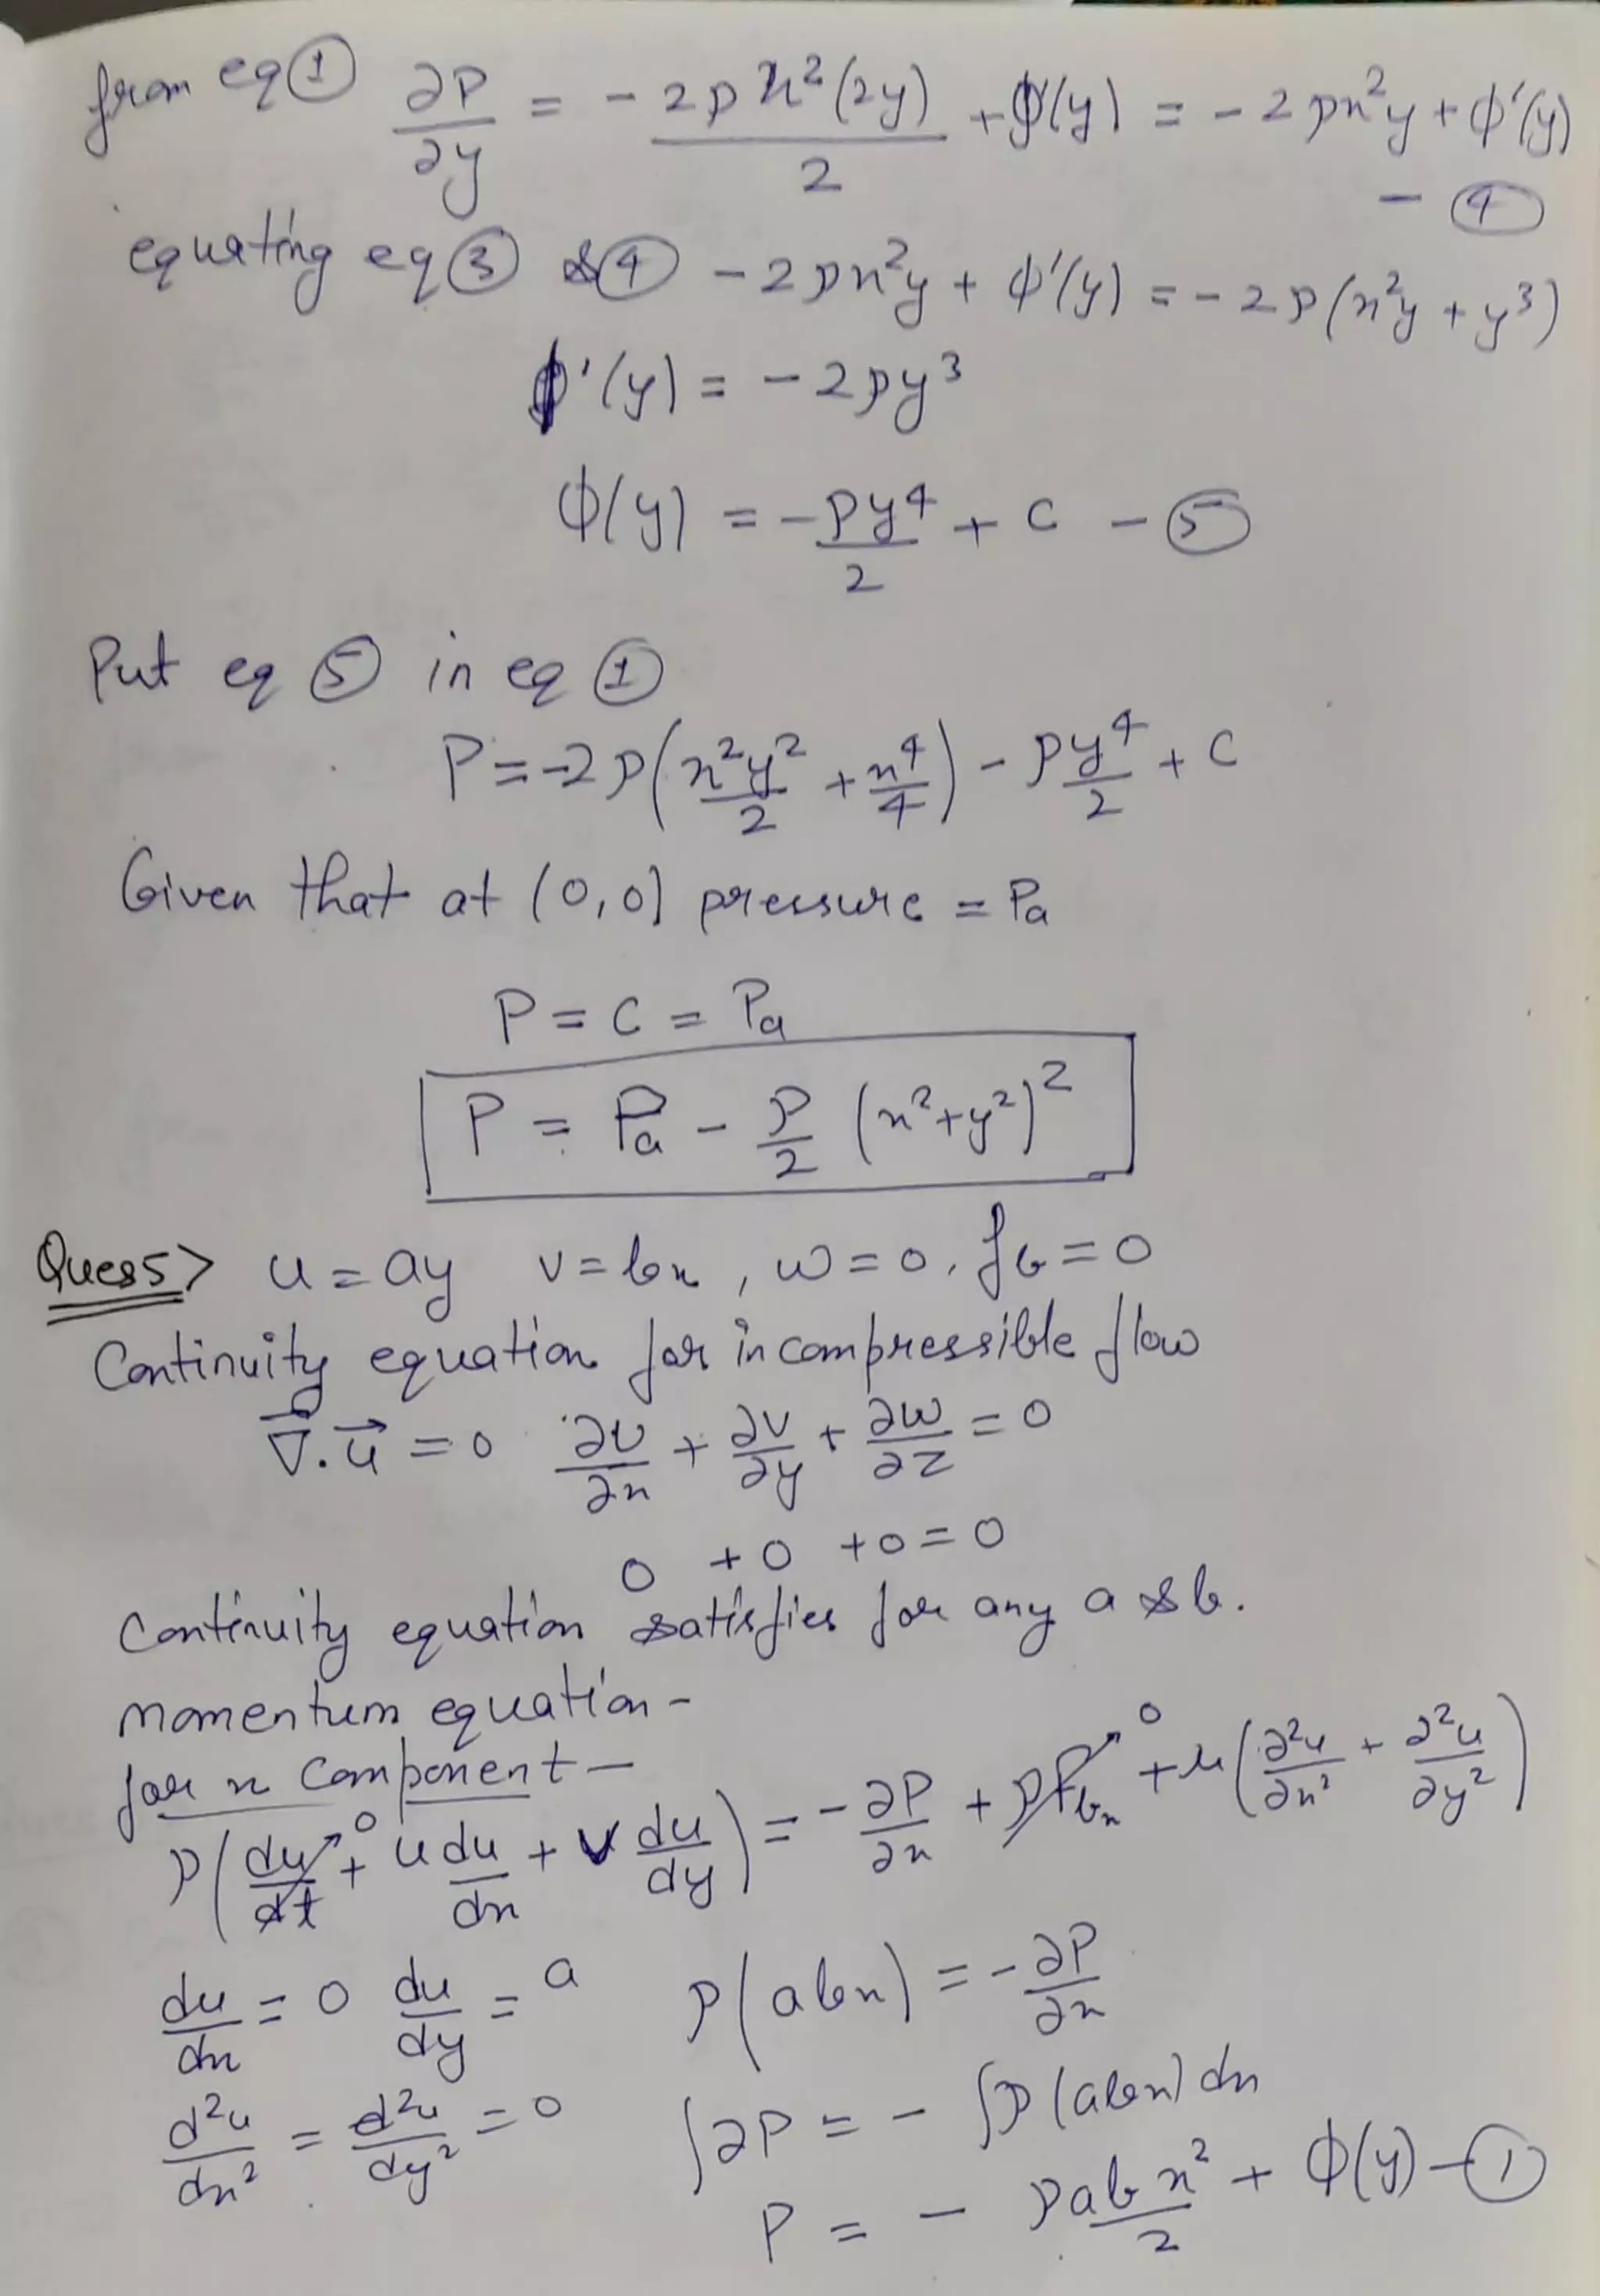 from eq ① ∂P/∂y = - 2ρx²(2y)/2 + ϕ'(y) = - 2ρx²y + ϕ'(y)
- ④
equating eq ③ & ④ - 2ρx²y + ϕ'(y) = - 2ρ(x²y + y³)
ϕ'(y) = - 2ρy³
ϕ(y) = - ρy⁴/2 + C - ⑤
Put eq ⑤ in eq ①
P = -2ρ(x²y²/2 + x⁴/4) - ρy⁴/2 + C
Given that at (0,0) pressure = Pa
P = C = Pa
P = Pa - ρ/2 (x²+y²)²
Ques5> u = ay v = bx , w = 0, fb = 0
Continuity equation for incompressible flow
∇⃗.u⃗ = 0 ∂u/∂x + ∂v/∂y + ∂w/∂z = 0
0 + 0 + 0 = 0
Continuity equation satisfies for any a & b.
momentum equation -
for x component -
ρ(du/dt↗0 + u du/dx + v du/dy) = - ∂P/∂x + ρfbx↗0 + μ(∂²u/∂x² + ∂²u/∂y²)
du/dx = 0 du/dy = a ρ(abx) = - ∂P/∂x
d²u/dx² = d²u/dy² = 0 ∫∂P = - ∫ρ(abx)dx
P = - ρabx²/2 + ϕ(y) - ①